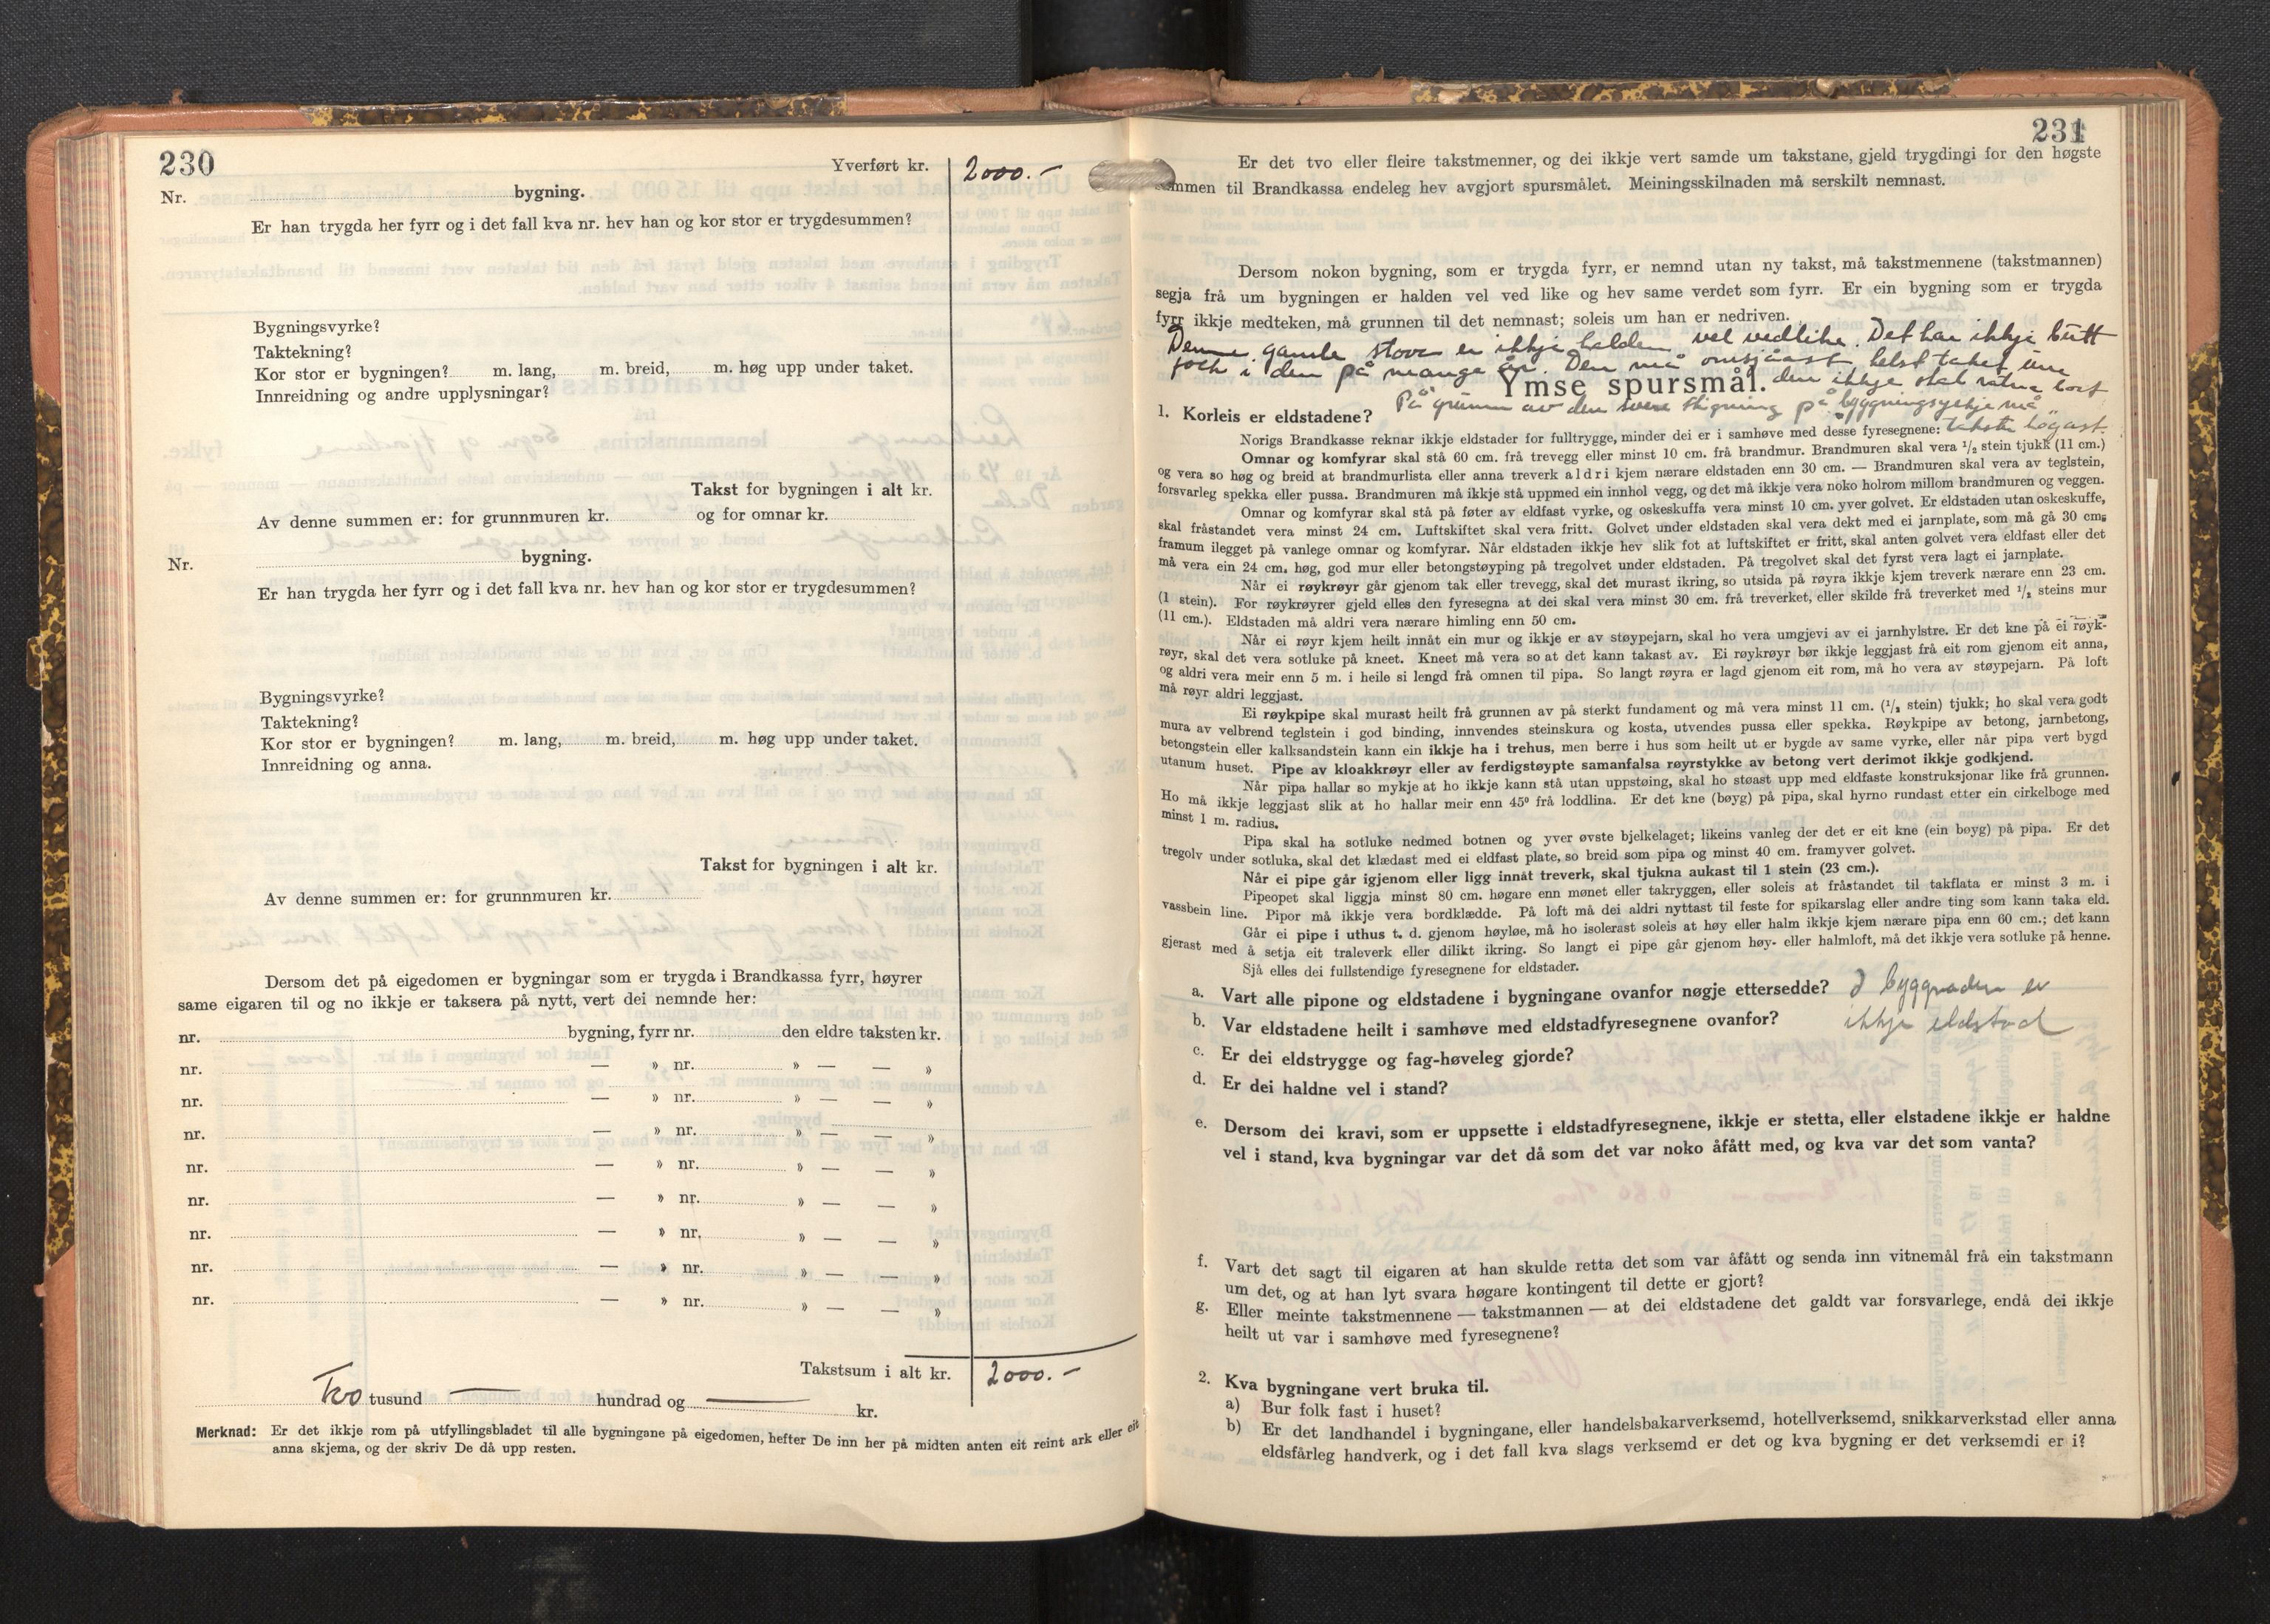 230
Yverført kr. 2000.-
Nr. bygning.
Er han trygda her fyrr og i det fall kva nr. hev han og kor stor er trygdesummen?
Bygningsvyrke?
Taktekning?
Kor stor er bygningen? m. lang, m. breid, m. høg upp under taket.
Innreidning og andre upplysningar?
Takst for bygningen i alt kr.
Av denne summen er: for grunnmuren kr. og for omnar kr.
Nr. bygning.
Er han trygda her fyrr og i det fall kva nr. hev han og kor stor er trygdesummen?
Bygningsvyrke?
Taktekning?
Kor stor er bygningen? m. lang, m. breid, m. høg upp under taket.
Innreidning og anna.
Takst for bygningen i alt kr.
Av denne summen er: for grunnmuren kr.
Dersom det på eigedomen er bygningar som er trygda i Brandkassa fyrr, høyrer
same eigaren til og no ikkje er taksera på nytt, vert dei nemnde her:
nr. bygning, fyrr nr. den eldre taksten kr.
nr. — » nr. » — — »
nr. — » nr. » — — »
nr. — » nr. » — — »
nr. — » nr. » — — »
nr. — » nr. » — — »
nr. — » nr. » — — »
nr. — » nr. » — — »
nr. — » nr. » — — »
Takstsum i alt kr. 2000.-
Tvo tusund — hundrad og — kr.
Merknad: Er det ikkje rom på utfyllingsbladet til alle bygningane på eigedomen, hefter De inn her på midten anten eit reint ark eller eit
anna skjema, og der skriv De då upp resten.
231
Er det tvo eller fleire takstmenner, og dei ikkje vert samde um takstane, gjeld trygdingi for den høgste
summen til Brandkassa endeleg hev avgjort spursmålet. Meiningsskilnaden må serskilt nemnast.
Dersom nokon bygning, som er trygda fyrr, er nemnd utan ny takst, må takstmennene (takstmannen)
segja frå um bygningen er halden vel ved like og hev same verdet som fyrr. Er ein bygning som er trygda
fyrr ikkje medteken, må grunnen til det nemnast; soleis um han er nedriven.
Denne gamle stova er ikkje halden vel vedlike. Det har ikkje butt
folk i den på mange år. Den må omsjåast helst taket um
Ymse spursmål. den ikkje skal råtna bort
På grunn av den svere stigning på byggningsyrkje må
1. Korleis er eldstadene?
Norigs Brandkasse reknar ikkje eldstader for fulltrygge, minder dei er i samhøve med desse fyresegnene: takste høgast.
Omnar og komfyrar skal stå 60 cm. frå trevegg eller minst 10 cm. frå brandmur. Brandmuren skal vera 1/2 stein tjukk (11 cm.)
og vera so høg og breid at brandmurlista eller anna treverk aldri kjem nærare eldstaden enn 30 cm. — Brandmuren skal vera av teglstein,
forsvarleg spekka eller pussa. Brandmuren må ikkje stå uppmed ein innhol vegg, og det må ikkje vera noko holrom millom brandmuren og veggen.
Omnar og komfyrar skal stå på føter av eldfast vyrke, og oskeskuffa vera minst 10 cm. yver golvet. Er eldstaden utan oskeskuffe,
skal fråstandet vera minst 24 cm. Luftskiftet skal vera fritt. Golvet under eldstaden skal vera dekt med ei jarnplate, som må gå 30 cm.
framum ilegget på vanlege omnar og komfyrar. Når eldstaden ikkje hev slik fot at luftskiftet er fritt, skal anten golvet vera eldfast eller det
må vera ein 24 cm. høg, god mur eller betongstøyping på tregolvet under eldstaden. På tregolvet skal det fyrst vera lagt ei jarnplate.
Når ei røykrøyr går gjenom tak eller trevegg, skal det murast ikring, so utsida på røyra ikkje kjem treverk nærare enn 23 cm.
(1 stein). For røykrøyrer gjeld elles den fyresegna at dei skal vera minst 30 cm. frå treverket, eller skilde frå treverket med 1/2 steins mur
(11 cm.). Eldstaden må aldri vera nærare himling enn 50 cm.
Når ei røyr kjem heilt innåt ein mur og ikkje er av støypejarn, skal ho vera umgjevi av ei jarnhylstre. Er det kne på ei røyk-
røyr, skal det vera sotluke på kneet. Kneet må vera so at det kann takast av. Ei røykrøyr bør ikkje leggjast frå eit rom gjenom eit anna,
og aldri vera meir enn 5 m. i heile si lengd frå omnen til pipa. So langt røyra er lagd gjenom eit rom, må ho vera av støypejarn. På loft
må røyr aldri leggjast.
Ei røykpipe skal murast heilt frå grunnen av på sterkt fundament og må vera minst 11 cm. (1/2 stein) tjukk; ho skal vera godt
mura av velbrend teglstein i god binding, innvendes steinskura og kosta, utvendes pussa eller spekka. Røykpipe av betong, jarnbetong,
betongstein eller kalksandstein kann ein ikkje ha i trehus, men berre i hus som heilt ut er bygde av same vyrke, eller når pipa vert bygd
utanum huset. Pipe av kloakkrøyr eller av ferdigstøypte samanfalsa røyrstykke av betong vert derimot ikkje godkjend.
Når pipa hallar so mykje at ho ikkje kann stå utan uppstøing, skal ho støast upp med eldfaste konstruksjonar like frå grunnen.
Ho må ikkje leggjast slik at ho hallar meir enn 45° frå loddlina. Er det kne (bøyg) på pipa, skal hyrno rundast etter ein cirkelboge med
minst 1 m. radius.
Pipa skal ha sotluke nedmed botnen og yver øvste bjelkelaget; likeins vanleg der det er eit kne (ein bøyg) på pipa. Er det
tregolv under sotluka, skal det klædast med ei eldfast plate, so breid som pipa og minst 40 cm. framyver golvet.
Når ei pipe går igjenom eller ligg innåt treverk, skal tjukna aukast til 1 stein (23 cm.).
Pipeopet skal liggja minst 80 cm. høgare enn mønet eller takryggen, eller soleis at fråstandet til takflata er minst 3 m. i
vassbein line. Pipor må ikkje vera bordklædde. På loft må dei aldri nyttast til feste for spikarslag eller andre ting som kann taka eld.
Går ei pipe i uthus t. d. gjenom høyløe, må ho isolerast soleis at høy eller halm ikkje kjem nærare pipa enn 60 cm.; det kann
gjerast med å setja eit traleverk eller dilikt ikring. So langt ei pipe går gjenom høy- eller halmloft, må det ikkje vera sotluke på henne.
Sjå elles dei fullstendige fyresegnene for eldstader.
a. Vart alle pipone og eldstadene i bygningane ovanfor nøgje ettersedde? I byggnaden er
b. Var eldstadene heilt i samhøve med eldstadfyresegnene ovanfor? ikkje eldstad
c. Er dei eldstrygge og fag-høveleg gjorde?
d. Er dei haldne vel i stand?
e. Dersom dei kravi, som er uppsette i eldstadfyresegnene, ikkje er stetta, eller elstadene ikkje er haldne
vel i stand, kva bygningar var det då som det var noko åfått med, og kva var det som vanta?
f. Vart det sagt til eigaren at han skulde retta det som var åfått og senda inn vitnemål frå ein takstmann
um det, og at han lyt svara høgare kontingent til dette er gjort?
g. Eller meinte takstmennene — takstmannen — at dei eldstadene det galdt var forsvarlege, endå dei ikkje
heilt ut var i samhøve med fyresegnene?
2. Kva bygningane vert bruka til.
a) Bur folk fast i huset?
b) Er det landhandel i bygningane, eller handelsbakarverksemd, hotellverksemd, snikkarverkstad eller anna
eldsfårleg handverk, og i det fall kva slags verksemd er det og kva bygning er det verksemdi er i?